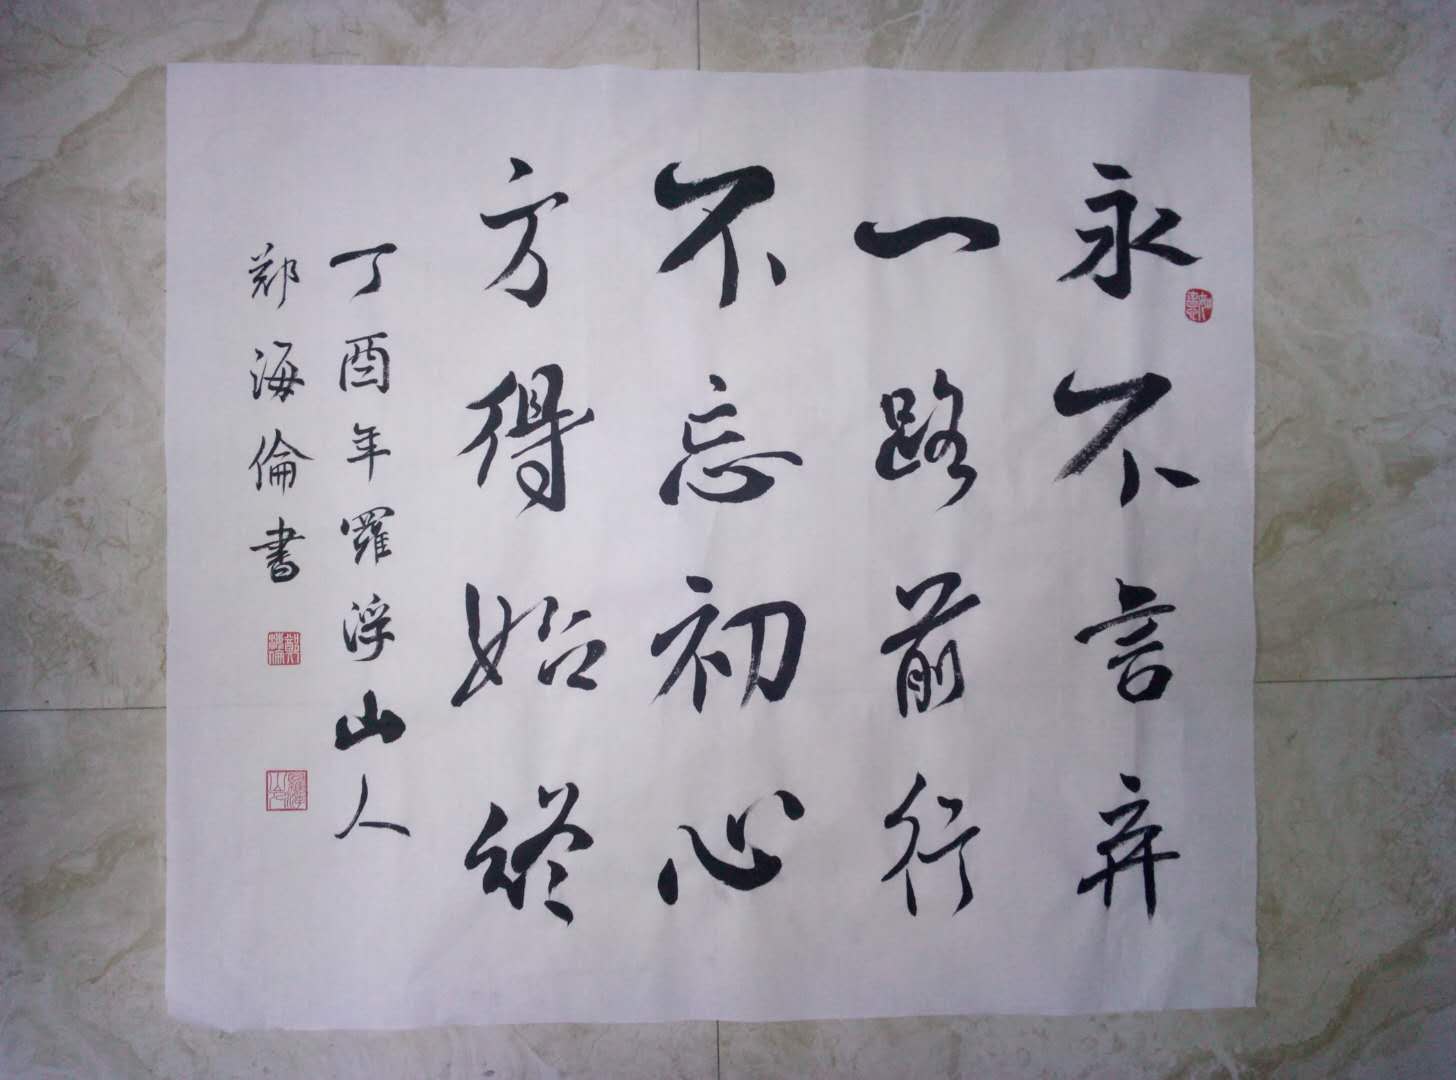 永不言弃
一路前行
不忘初心
方得始终
丁酉年羅浮山人
郑海倫書